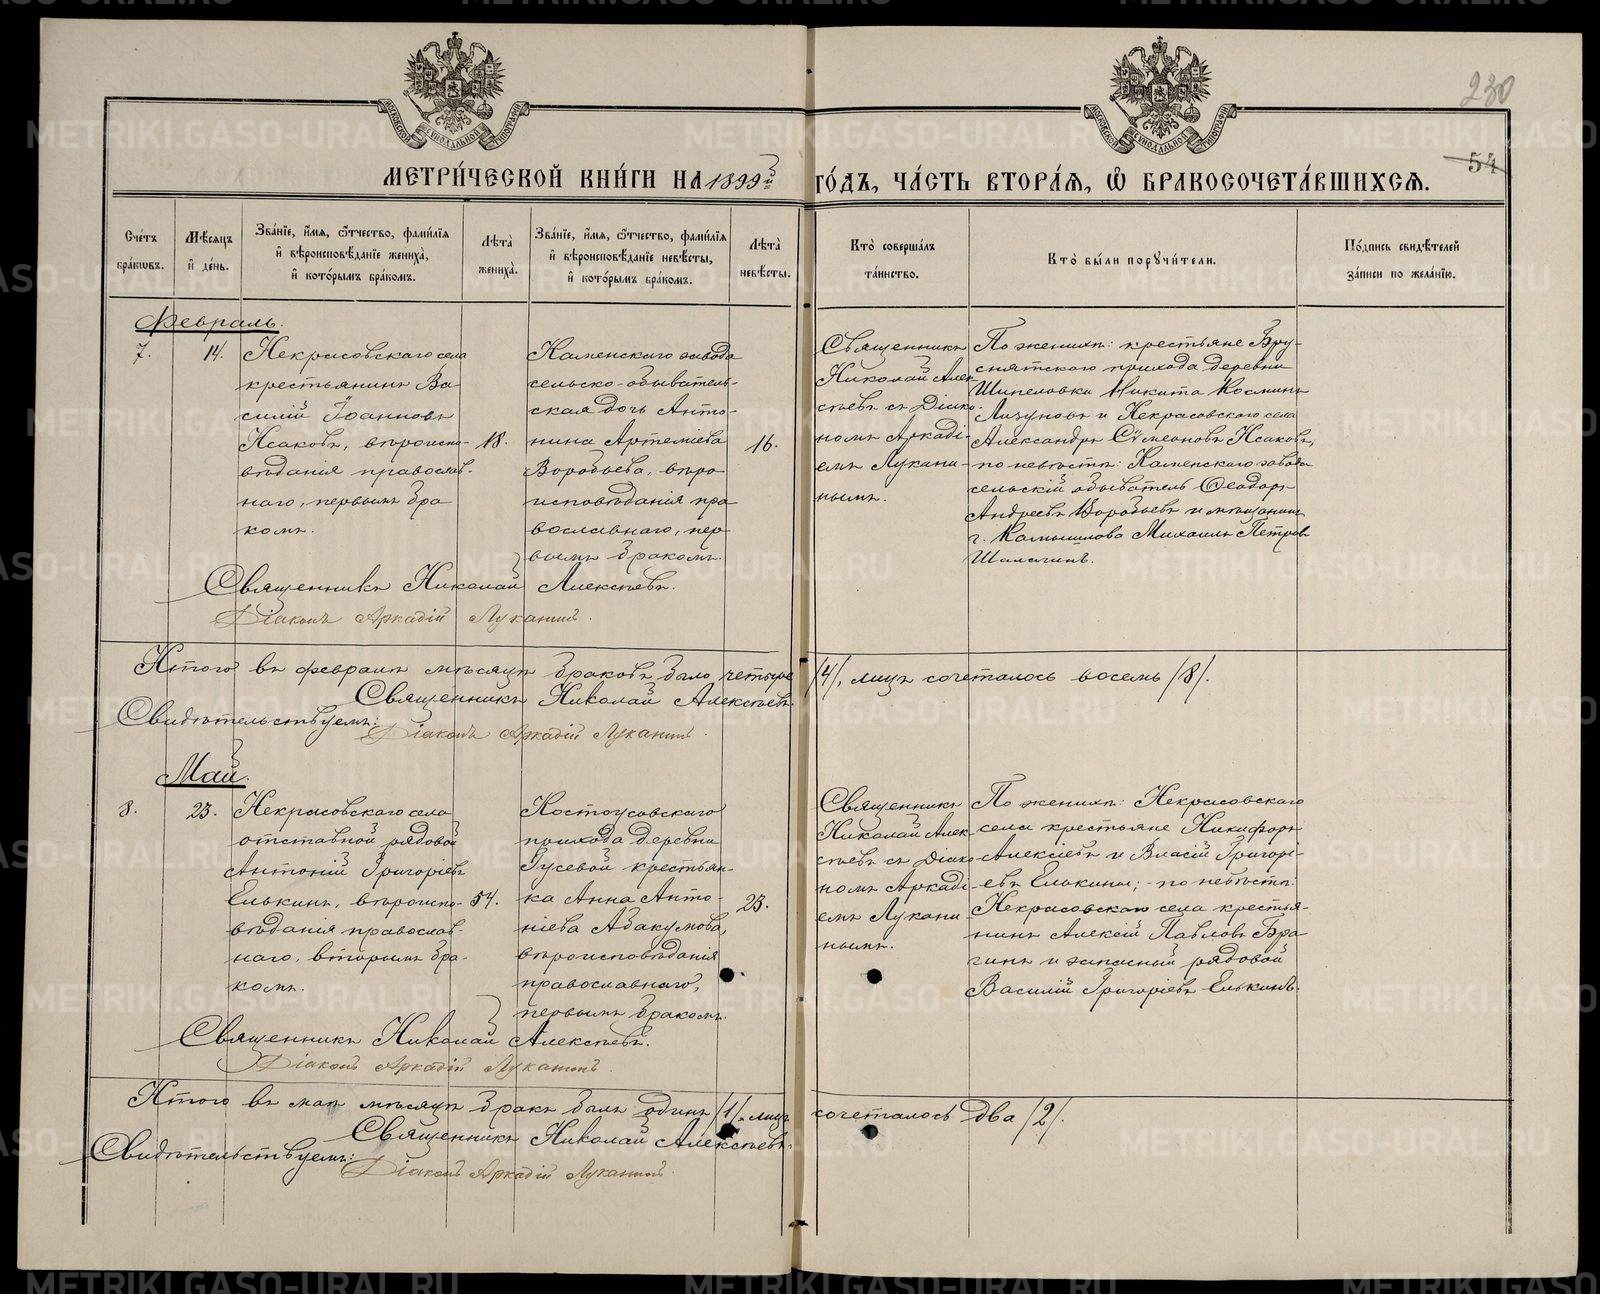 230
54
МЕТРИ́ЧЕСКОЙ КНИ́ГИ НА 1899й ГО́ДЪ, ЧА́СТЬ ВТОРА́Я, Ѽ БРАКОСОЧЕТА́ВШИХСЯ.
Сче́тъ бра́кѡвъ.
Мѣ́сяцъ и҆ де́нь.
Зва́нїе, и҆́мѧ, ѻ҆́тчество, фами́лїѧ и҆ вѣроисповѣ́данїе жениха̀, и҆ кото́рымъ бра́комъ.
Лѣ́та жениха̀.
Зва́нїе, и҆́мѧ, ѻ҆́тчество, фами́лїѧ и҆ вѣроисповѣ́данїе невѣ́сты, и҆ кото́рымъ бра́комъ.
Лѣ́та невѣ́сты.
Кто̀ соверша́лъ та́инство.
Кто̀ бы́ли порꙋчи́тели.
По́дпись свидѣ́телей за́писи по жела́нїю.
Февраль.
7.
14.
Некрасовскаго села
крестьянинъ Ва
силій Іоанновъ
Исаковъ, вѣроиспо-
вѣданія православ-
наго, первымъ бра
комъ.
18.
Каменскаго завода
сельско-обыватель-
ская дочь Анто-
нина Артеміева
Воробьева, вѣро
исповѣданія пра
вославнаго, пер
вымъ бракомъ.
16.
Священникъ
Николай Алек
сѣевъ съ Діако
номъ Аркаді-
емъ Лукани-
нымъ.
По женихѣ: крестьяне Бру-
снятскаго прихода деревни
Шипеловки Никита Космичъ
Лизуновъ и Некрасовскаго села
Александръ Сѵмеоновъ Исаковъ,
по невѣстѣ: Каменскаго завода
сельскій обыватель Ѳеодоръ
Андреевъ Воробьевъ и мѣщанинъ
г. Камышлова Михаилъ Петровъ
Шалагинъ.
Священникъ Николай Алексѣевъ.
Діаконъ Аркадій Луканинъ.
Итого въ февралѣ мѣсяцѣ браковъ было четыре /4/, лицъ сочеталось восемь /8/.
Священникъ Николай Алексѣевъ.
Свидѣтельствуемъ:
Діаконъ Аркадій Луканинъ.
Май.
8.
23.
Некрасовскаго села
отставной рядовой
Антоній Григоріевъ
Елькинъ, вѣроиспо-
вѣданія православ-
наго, вторымъ бра-
комъ.
54.
Костоусовскаго
прихода деревни
Гусевой крестьян-
ка Анна Анто-
ніева Абакумова,
вѣроисповѣданія
православнаго,
первымъ бракомъ.
23.
Священникъ
Николай Алек-
сѣевъ съ Діако
номъ Аркаді-
емъ Лукани
нымъ.
По женихѣ: Некрасовскаго
села крестьяне Никифоръ
Алексіевъ и Власій Григорі-
евъ Елькины; - по невѣстѣ:
Некрасовскаго села крестья-
нинъ Алексій Павловъ Бра
гинъ и запасный рядовой
Василій Григоріевъ Елькинъ.
Священникъ Николай Алексѣевъ.
Діаконъ Аркадій Луканинъ.
Итого въ маѣ мѣсяцѣ бракъ былъ одинъ /1/, лицъ сочеталось два /2/.
Священникъ Николай Алексѣевъ.
Свидѣтельствуемъ:
Діаконъ Аркадій Луканинъ.